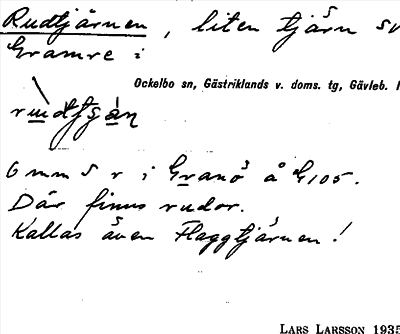 Rudtjärnen, liten tjärn sv
Gramre i
Ockelbo sn, Gästriklands v. doms. tg, Gävleb. l
6 mm S r i Granö å G105.
Där finns rudor.
Kallas även Flaggtjärnen!
LARS LARSSON 1935